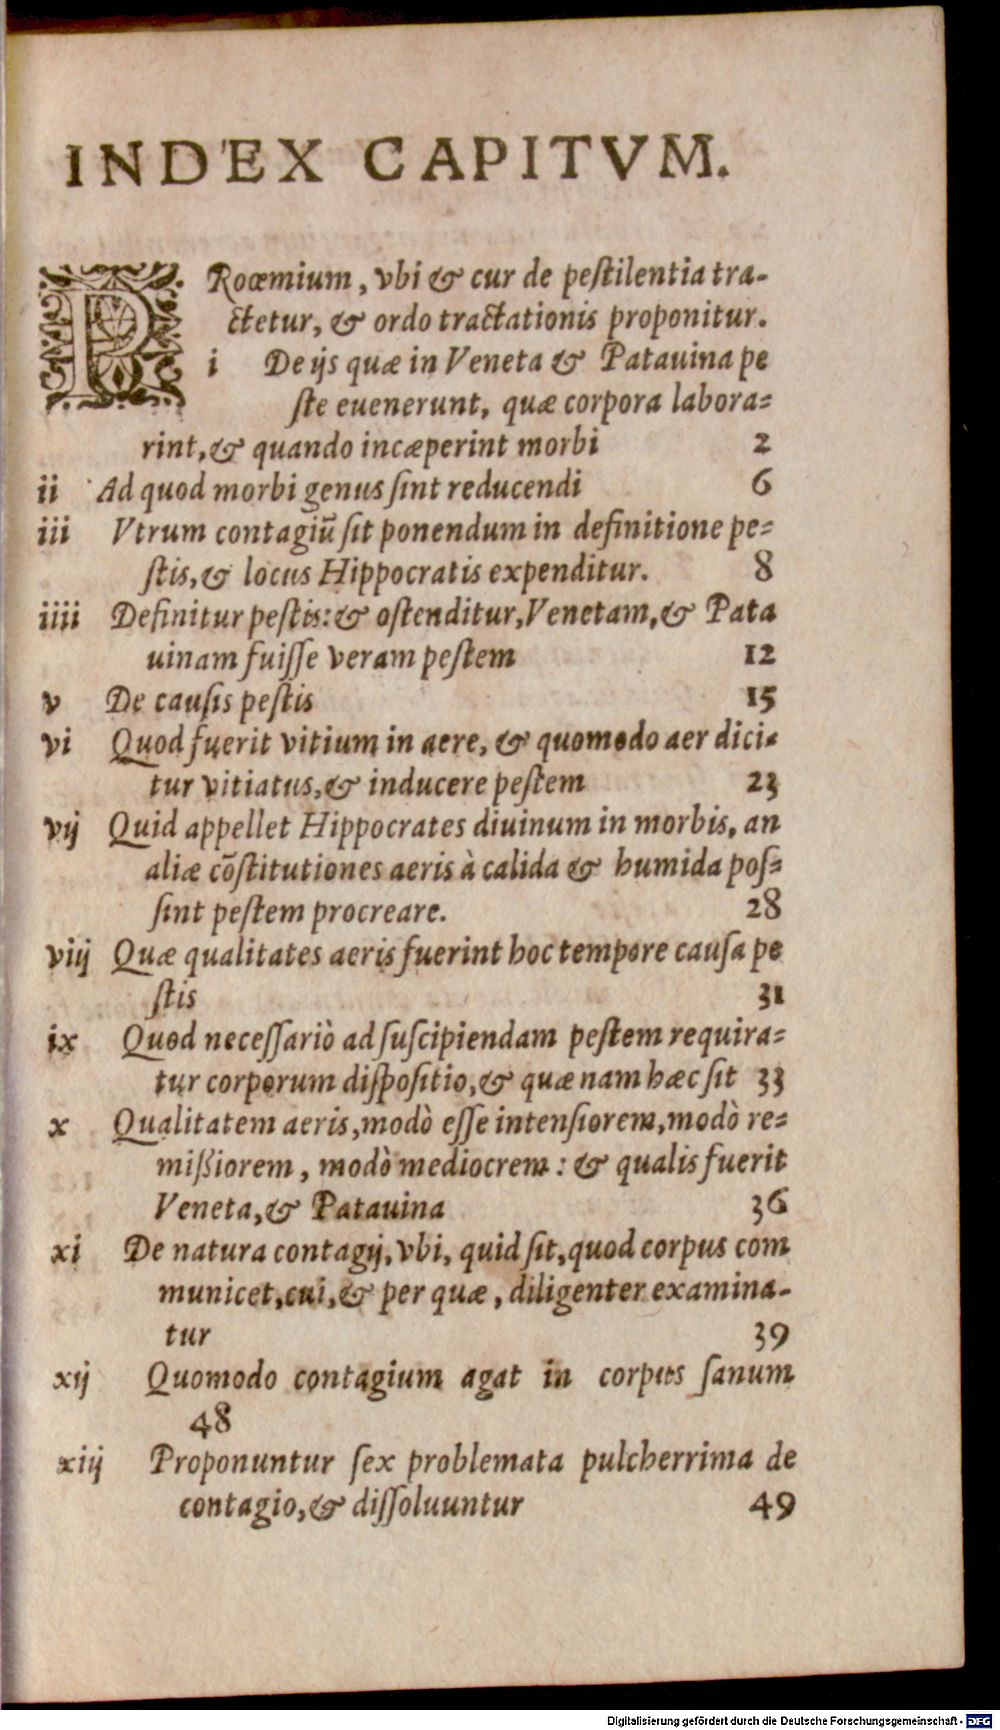 INDEX CAPITVM.
PRoœmium, vbi & cur de peſtilentia tra-
ctetur, & ordo tractationis proponitur.
i De ijs quæ in Veneta & Patauina pe
ſte euenerunt, quæ corpora labora-
rint, & quando incæperint morbi 2
ii Ad quod morbi genus ſint reducendi 6
iii Vtrum contagiū ſit ponendum in definitione pe-
ſtis, & locus Hippocratis expenditur. 8
iiii Definitur peſtis: & oſtenditur, Venetam, & Pata
uinam fuiſſe veram peſtem 12
v De cauſis peſtis 15
vi Quod fuerit vitium in aere, & quomodo aer dici-
tur vitiatus, & inducere peſtem 23
vij Quid appellet Hippocrates diuinum in morbis, an
aliæ cōſtitutiones aeris à calida & humida poſ-
ſint peſtem procreare. 28
viij Quæ qualitates aeris fuerint hoc tempore cauſa pe
ſtis 31
ix Quod neceſſariò ad ſuſcipiendam peſtem requira-
tur corporum diſpoſitio, & quæ nam hæc ſit 33
x Qualitatem aeris, modò eſſe intenſiorem, modò re-
mißiorem, modò mediocrem: & qualis fuerit
Veneta, & Patauina 36
xi De natura contagij, vbi, quid ſit, quod corpus com
municet, cui, & per quæ, diligenter examina-
tur 39
xij Quomodo contagium agat in corpus ſanum
48
xiij Proponuntur ſex problemata pulcherrima de
contagio, & diſſoluuntur 49
Digitalisierung gefördert durch die Deutsche Forschungsgemeinschaft - DFG